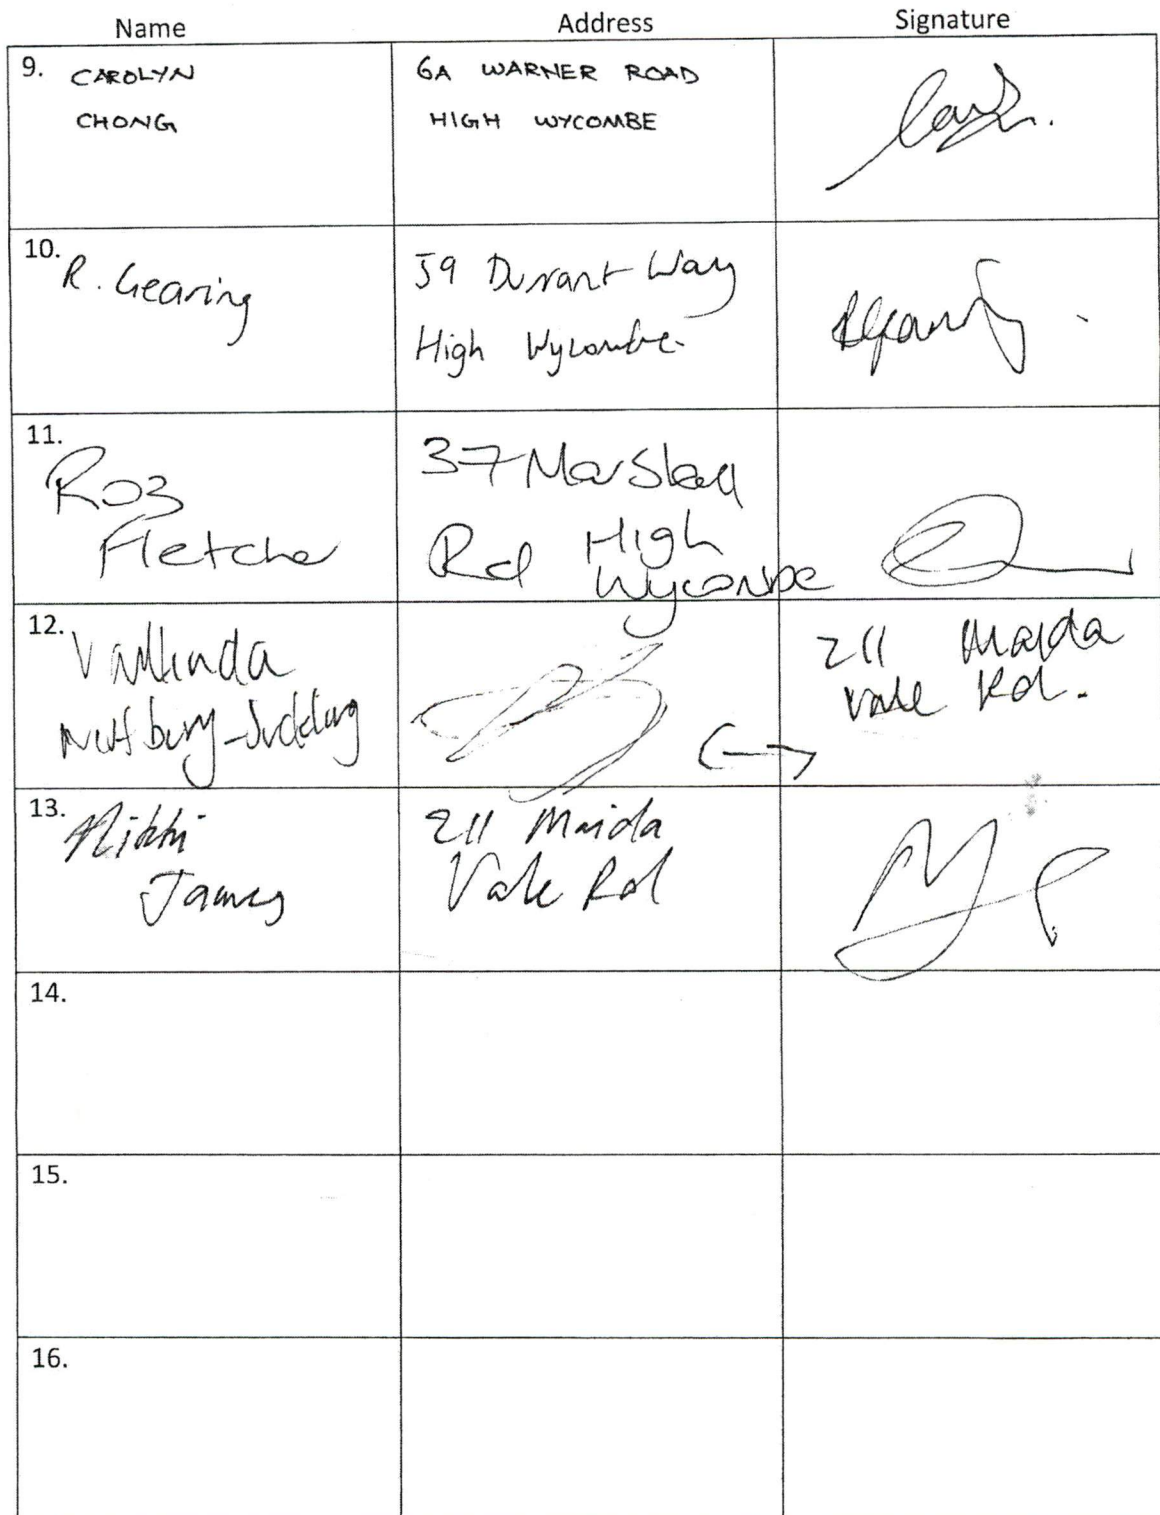 Name Address Signature
9. CAROLYN CHONG
6A WARNER ROAD
HIGH WYCOMBE
10. R. Gearing
59 Durrant Way
High Wycombe.
11. Roz
Fletcher
37 Marshall
Rd High
Wycombe
12.
211 Maida
Vale Rd.
13. Nikki
James
211 Maida
Vale Rd
14.
15.
16.